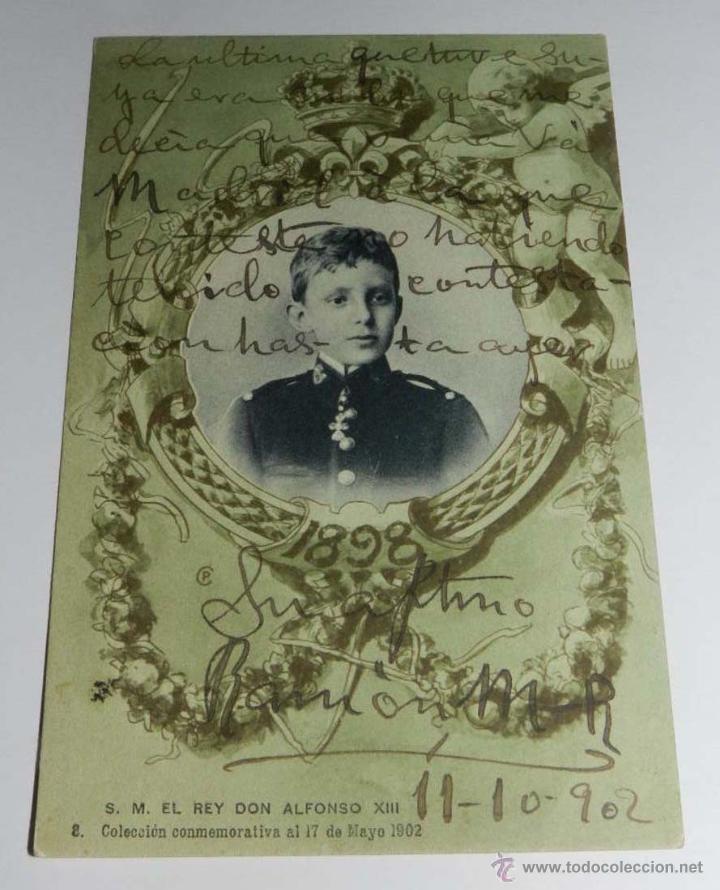 La ultima que tuve su-
ya era en la que me
decia que iva a
Madrid á la que
conteste no habiendo
tenido contesta-
cion has- ta ayer
1898
Su aftmo
Ramón M-R
11-10-902
S. M. EL REY DON ALFONSO XIII
8. Colección conmemorativa al 17 de Mayo 1902
© www.todocoleccion.net